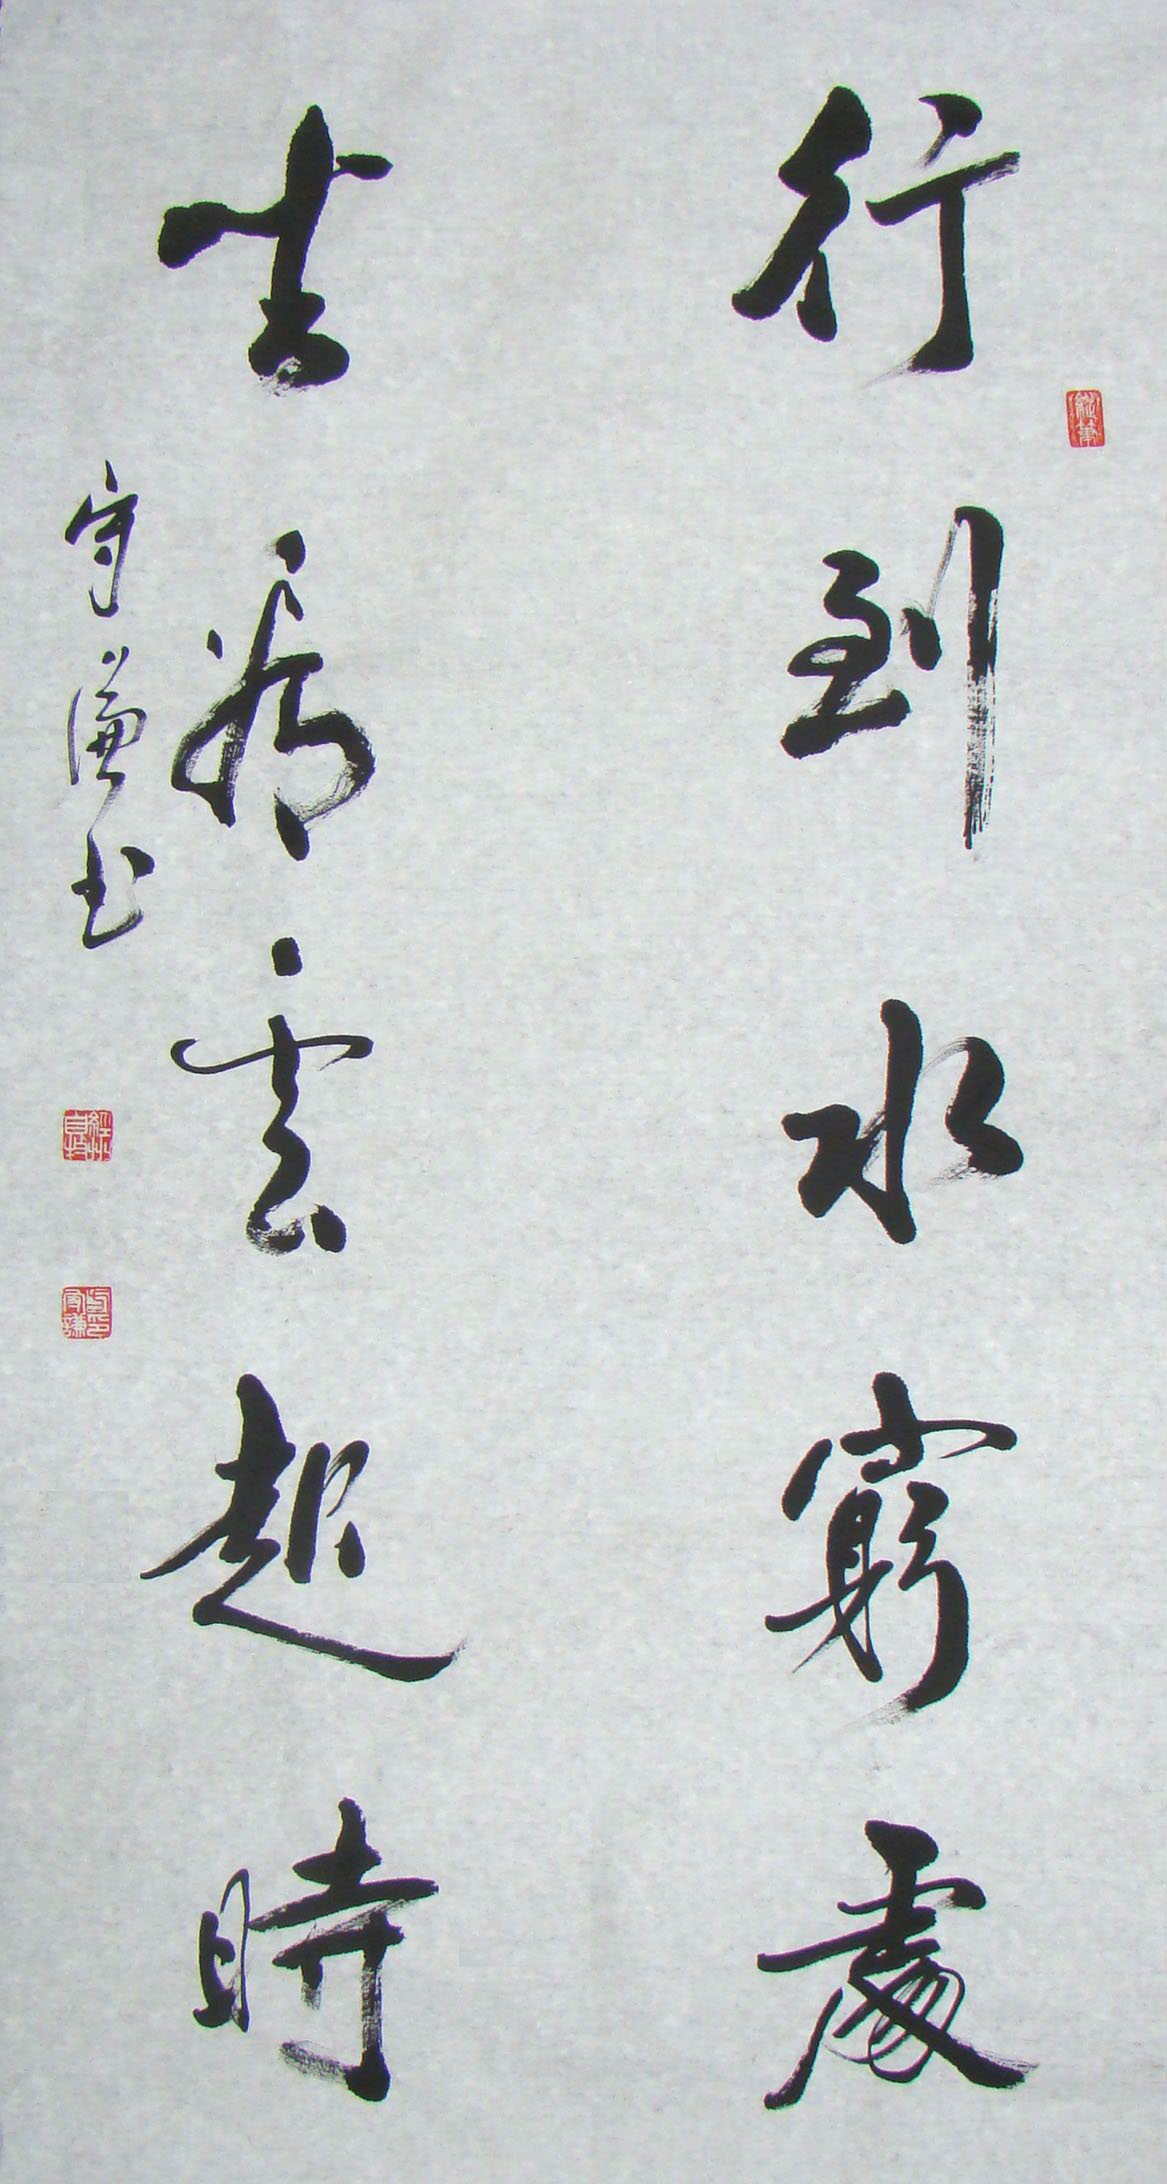 行到水窮處
坐看雲起時
守謙書